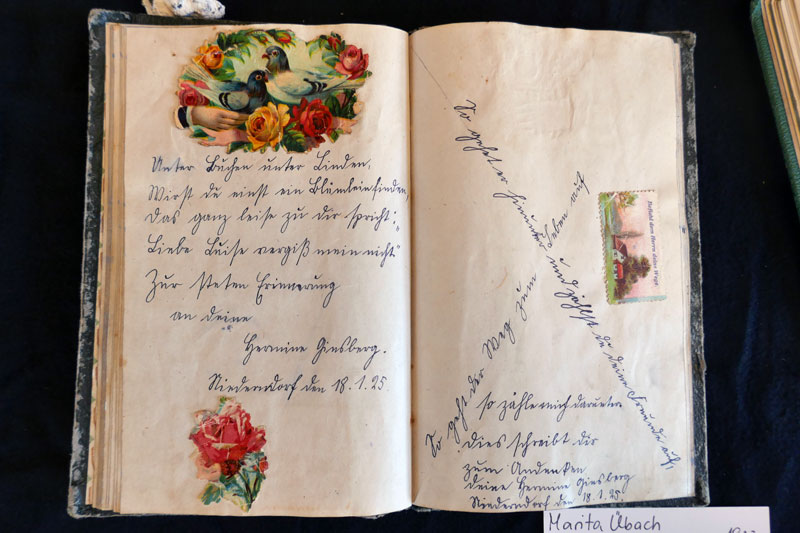 Unter Buchen unter Linden,
Wirst du einst ein Blümlein finden,
Das ganz leise zu dir spricht:
„Liebe Luise vergiß mein nicht"
Zur steten Erinnerung
an deine
Hermine Ginsberg.
Niederndorf den 18.1.25.
So geht der Weg zum Leben auf
So gehet er hinunter und zählst du deine Freunde auf,
so zähle mich darunter.
Dies schreibt dir
zum Andenken
deine Hermine Ginsberg
Niederndorf den 18.1.25.
Befiehl dem Herrn deine Wege
Marita Übach